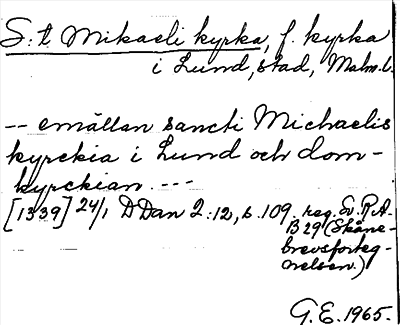 S:t Mikaeli kyrka, f. kyrka
i Lund, stad, Malm.l.
-- emällan sancti Michaelis
kyrckia i Lund och dom-
kyrckian ---
[1339] 24/1 DDan 2:12, s. 109. reg. Sv. RA.
B 29 (Skåne-
brevsforteg-
nelsen.)
G.E. 1965.